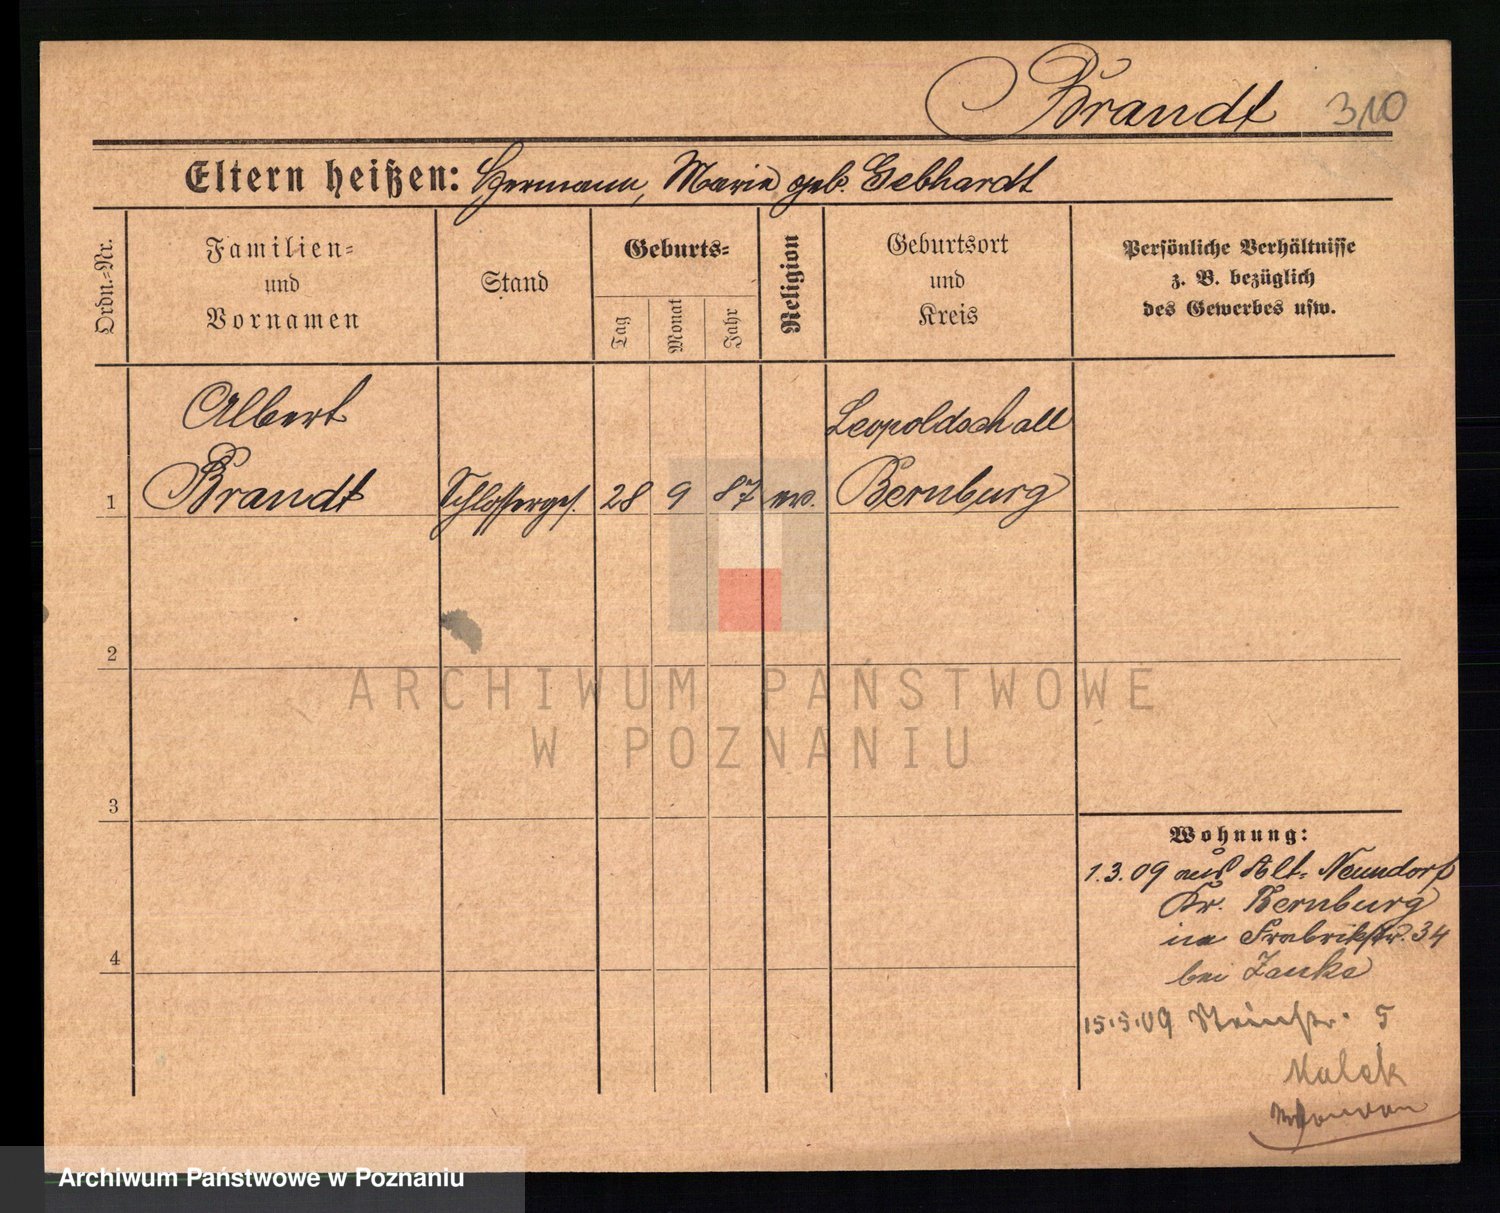 Brandt 310
Eltern heißen: Hermann, Marie geb. Gebhardt
Ordn.=Nr.
Familien=
und
Vornamen
Stand
Geburts=
Tag
Monat
Jahr
Religion
Geburtsort
und
Kreis
Persönliche Verhältnisse
z. B. bezüglich
des Gewerbes usw.
Albert
Leopoldschall
1 Brandt Schlosserges. 28 9 87 ev. Bernburg
2
ARCHIWUM PAŃSTWOWE
W POZNANIU
3
Wohnung:
1.3.09 aus Alt-Neundorf
Kr. Bernburg
in Frabrikstr. 34
4
bei Janke
15.5.09 Steinstr. 5
Malek
Archiwum Państwowe w Poznaniu